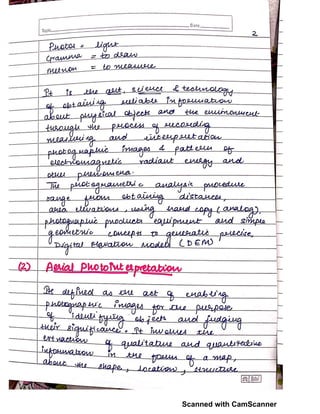 Topic
Date
2
Photos = light
Gramma = to draw
metron = to measure
It is the art, science & technology
of obtaining reliable information
about physical objects and the environment
through the process of recording
measuring and interpretation
photographic images & pattern of
electromagnetic radiant energy and
other phenomena.
The photogrammetric analysis procedure
range from obtaining distances,
area elevations, using hard copy (analog),
photographic products equipment and simple
geometric concepts to generate precise
Digital elevation models (DEM)
(2) Aerial Photointerpretation
Be defined as the act of enabling
photographic images for the purpose
of identifying objects and judging
their significance. It involves the
extraction of qualitative and quantitative
information in the form of a map,
about the shape, location, structure
Scanned with CamScanner